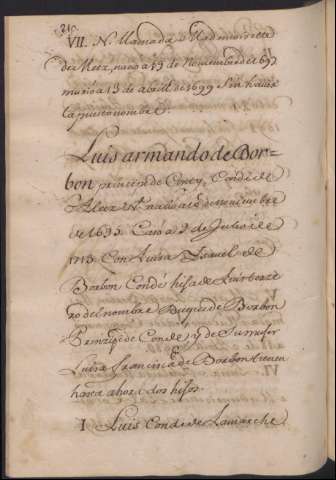 210.
VII. N. llamada Madmoisela
de Metz, nacio a 19 de Noviembre de 697
murio a 13 de abril de 1699 sin haver
la puesto nombre.
Luis armando de Bor-
bon principe de Conty, Conde de
Alez &a. nacio a 10 de noviembre
de 1695. Caso a 9 de Julio de
1713 Con Luisa Isavel de
Borbon Condé hija de Luis terze
ro del nombre Duque de Borbon
Principe de Conde, y de su mujer
Luisa francisca de Borbon tienen
hasta ahora dos hijos.
I Luis Conde de Lamarche